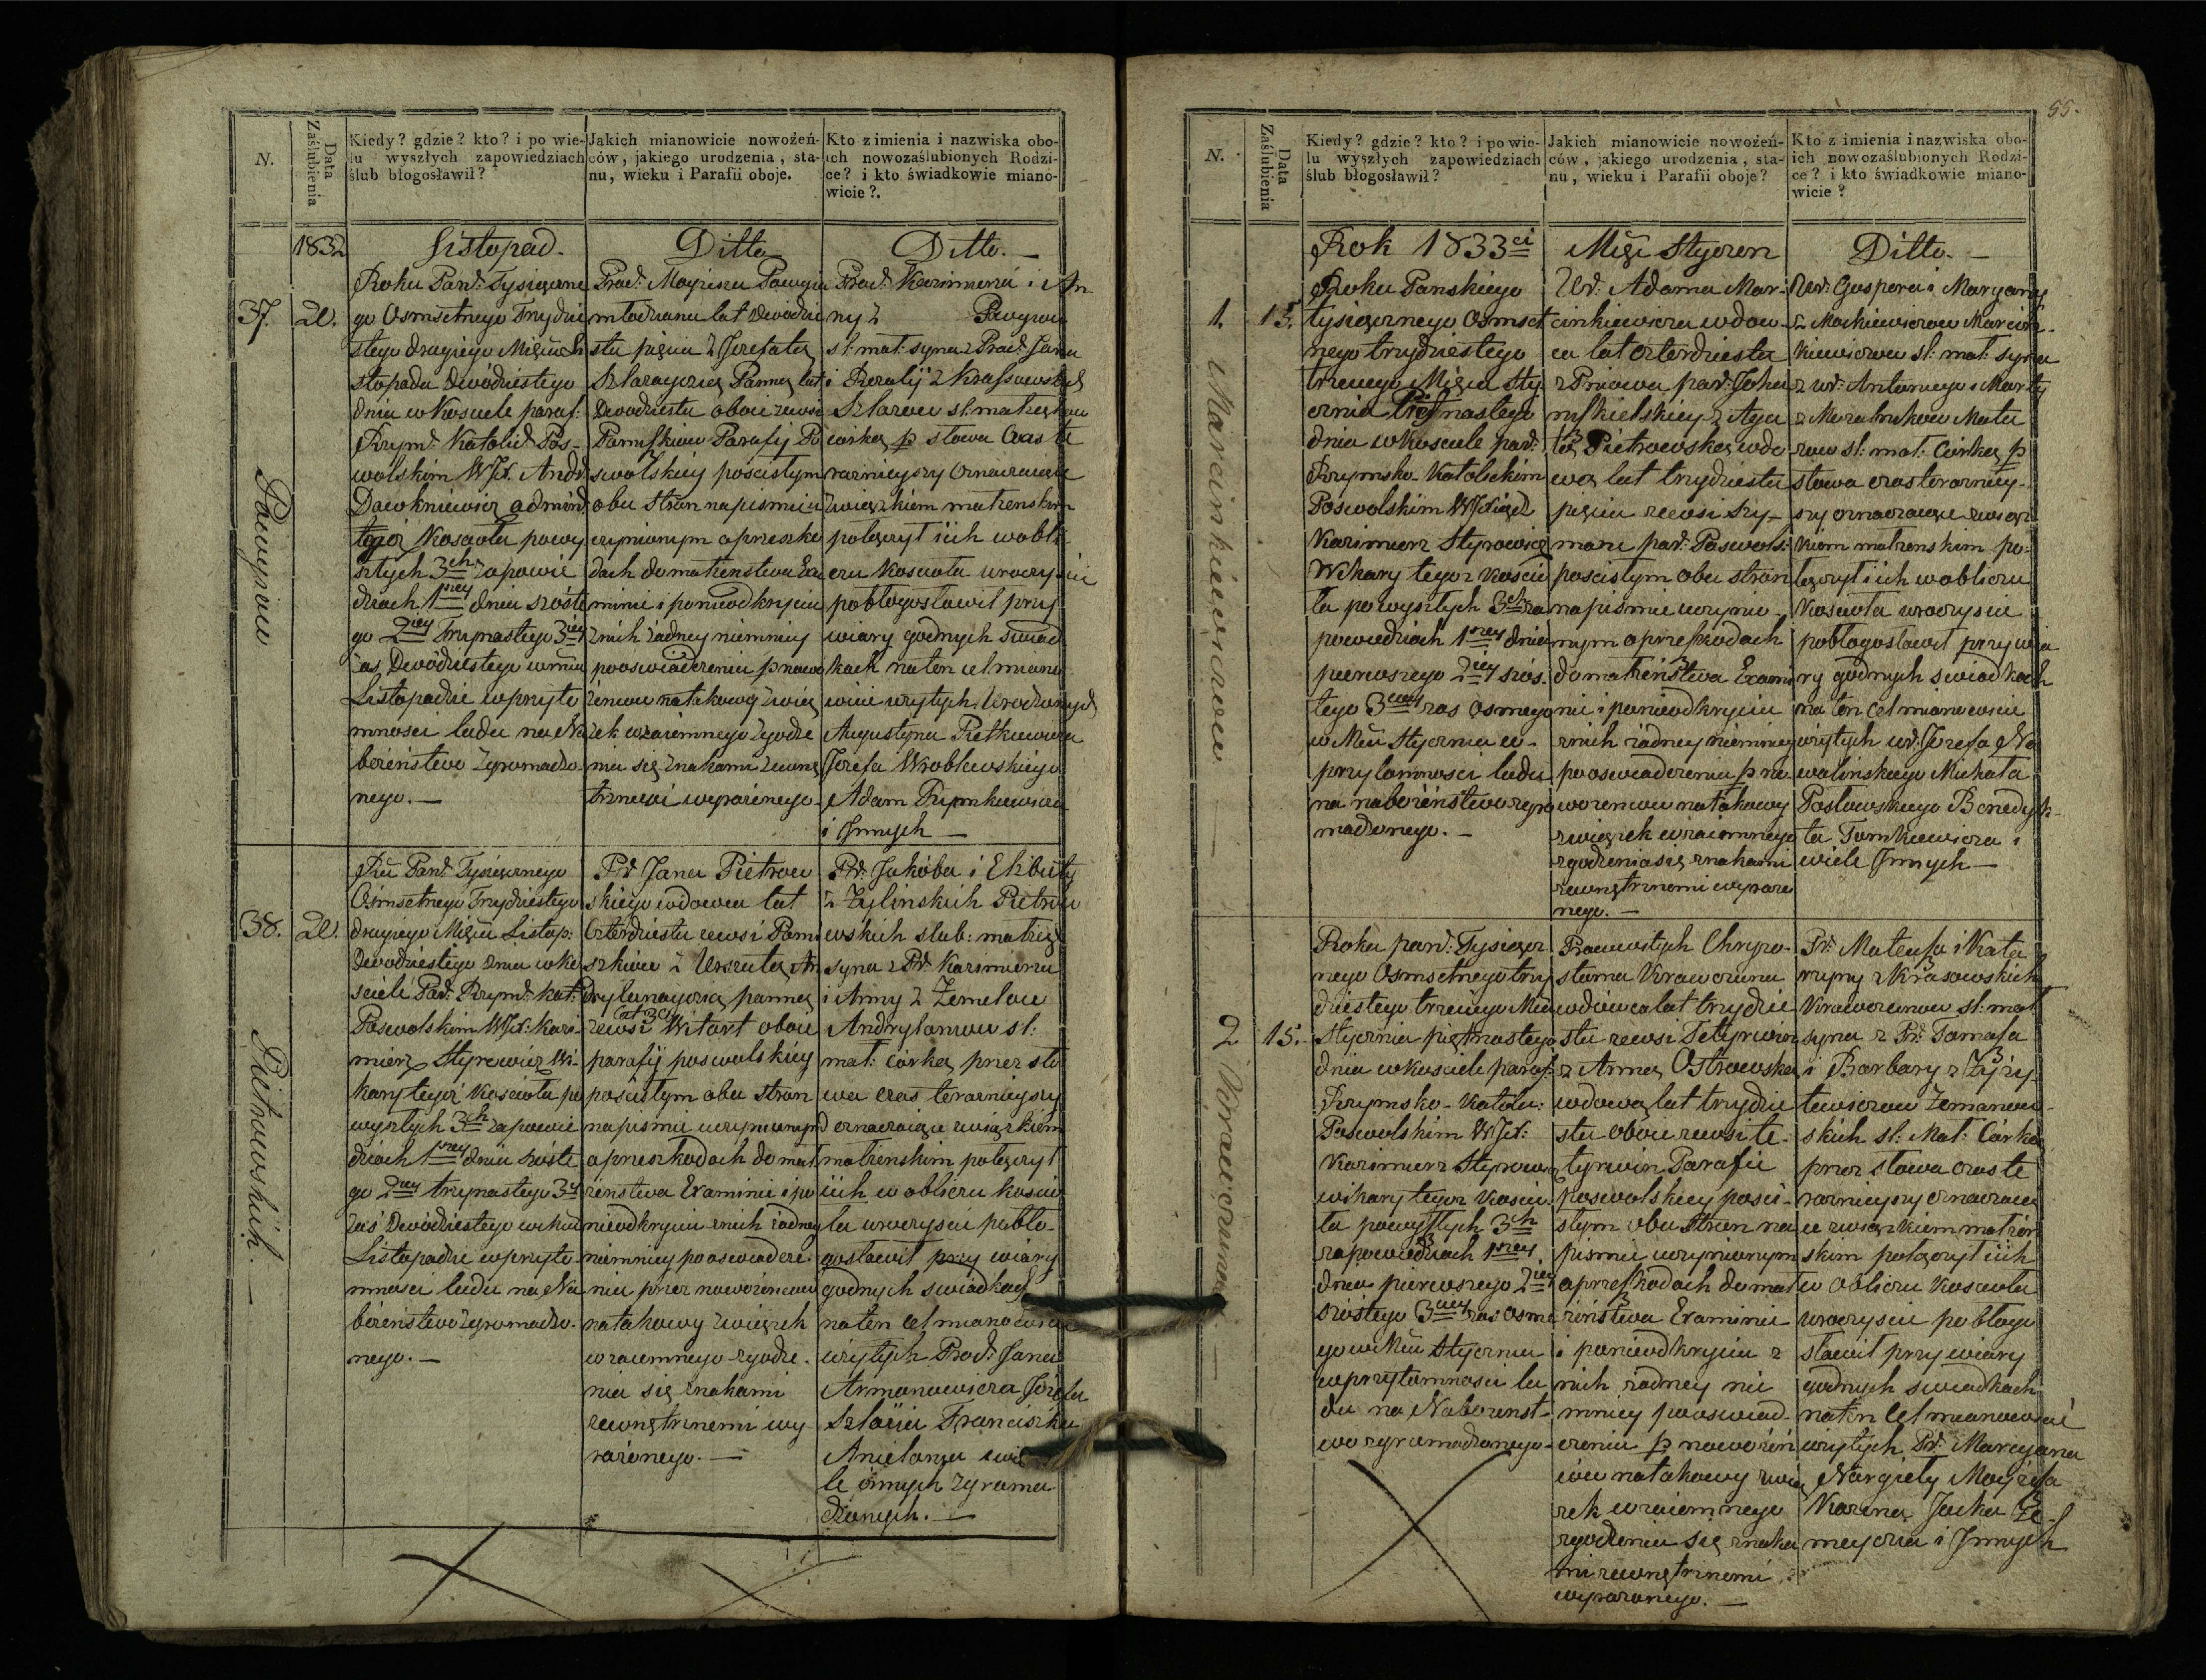 N.
Data
Zaślubienia
Kiedy? gdzie? kto? i po wie-
lu wyszłych zapowiedziach
ślub błogosławił?
Jakich mianowicie nowożeń-
ców, jakiego urodzenia, sta-
nu, wieku i Parafii oboje.
Kto z imienia i nazwiska obo-
ich nowozaślubionych Rodzi-
ce? i kto świadkowie miano-
wicie?.
1832
Listopad.
Ditto
Ditto. —
37.
20.
Roku Pań: Tysiączne
go Osmsetnego Trzydzie
stego drugiego Miesca Li
stopada Dwódziestego
dnia w Kosciele paraf:
Rzym: Katolick: Pos-
wolskim WJX. Andr:
Dawkniewicz admin:
tegoż Koscioła powy
szłych 3ch zapowie
dziach 1szey dnia szóste
go 2iey Trzynastego 3iey
zaś Dwódziestego w mcu
Listopadzie w przyto
mnosci ludu na Na
bożeństwo zgromadzo-
nego. —
młodziana lat Dwodzie
stu pięciu z Jozefatą
Szlazayczią Panną lat
Dwodziestu oboie zewsi
Pamuszkiow Parafij Po
swolskiey poscisłym
obu stron napismie u
czynionym o przeszko
dach do małżenstwa Exa
minie i ponieodkryciu
z nich żadney niemniey
pooswiadczeniu p nowo
żencow natakowy zwią
zek wzaiemnego zgodze
nia się znakami zewnę
trznemi wyrażonego.
Prac: Kazimierza i An-
ny z
sł: mał: syna z Prac: Jana
i Rozalij z Krassowskich
Szlazow sł: małżeńską
corką p słowa Czas te
raznieyszy Oznaczaiące
związkiem małżenskim
połączył iich wobli-
czu Kosciola uroczyscie
pobłogosławił przy
wiary godnych swiad
kach na ten cel miano
wicie wzytych. Urodzonych
Augustyna Pietkiewicza
Jozefa Wroblewskiego
Adam Trynkiewicza
i Jnnych —
38.
20.
Pietrowskich. —
Rku Pań: Tysiącznego
Osmsetnego Trzydziestego
drugiego Mięca Listop:
Dwodziestego dnia w Ko
sciele Par: Rzym: Kat:
Poswolskim WJX: Kazi-
mierz Styrowicz Wi-
kary tegoż Kosciola po
wyszłych 3ch zapowie
dziach 1szey dnia szoste
go 2iey trzynastego 3iey
zaś Dwodziestego w mcu
Listopadzie w przyto
mnosci ludu na Na
bożeństwo zgromadzo-
nego. —
Pr Jana Pietrow
skiego wdowca lat
Czterdziestu zewsi Pamu
szkiow z Urszulą An
drylunayczią panną
lat 30
zewsi Witart oboie
parafij poswolskiey
poscisłym obu stron
napismie uczynionym
o przeszkodach do mał
żenstwa Examinie i po
nieodkryciu znich żadney
niemniey pooswiadcze-
niu przez nowożencow
natakowy związek
wzaiemnego zgodze-
nia się znakami
zewnętrznemi wy
rażonego. —
Pr: Jakóba i Elzbiety
z Zylinskich Pietro
wskich slub: małżeń:
syna z Pr Kazimierza
i Anny z Zemelow
Andrylanow sł:
mał: corką przez sło
wa czas teraznieyszy
oznaczaiące związkiem
małżenskim połączył
iich w obliczu koscio
la uroczyscie pobło-
gosławił przy wiary
godnych swiadkach
naten cel mianowicie
wzytych Prac: Jana
Armonowicza Jozefa
Szlaiia Franciszka
i wie
le innych zgroma
dzonych. —
55.
N.
Data
Zaślubienia
Kiedy? gdzie? kto? i po wie-
lu wyszłych zapowiedziach
ślub błogosławił?
Jakich mianowicie nowożeń-
ców, jakiego urodzenia, sta-
nu, wieku i Parafii oboje?
Kto z imienia i nazwiska obo-
ich nowozaślubionych Rodzi-
ce? i kto świadkowie miano-
wicie?
Rok 1833ci
Mięc Styczen
Ditto. —
1.
15.
Marcinkiewiczow —
Roku Panskiego
tysiącznego Osmset
nego trzydziestego
trzeciego Mięca Sty
cznia
dnia w Kosciele par:
Rzymsko Katolickim
Poswolskim WJXiądz
Kazimierz Styrowicz
Wikary tegoz Koscio
ła po wyszłych 3ch za
powiedziach 1szey dnia
pierwszego 2iey szós-
tego 3ciey zas Osmego
w Mcu Styczniu w-
przytomnosci ludu
na nabożeństwo zgro
madzonego. —
Ur: Adama Mar-
cinkiewicza wdow-
ca lat czterdziestu
z Pniowa par: Joha
niszkielskiey z Aga
tą Pietrowską wdo
wą lat trzydziestu
pięciu zewsi Szy-
mani par: Poswols:
poscisłym obu stron
napismie uczynio-
nym o przeszkodach
do małżeństwa Exami
nie i ponieodkryciu
znich żadney niemniey
pooswiadczeniu p no
wozencow natakowy
związek wzaiemnego
zgodzenia się znakami
zewnętrznemi wyrazo
nego. —
Ur: Gaspera i Maryanny
z Mackiewiczow Marcin-
kiewiczow sł: mał: syna
z ur: Antoniego i Marty
z
sł: mał: Corką p
słowa czas terazniey-
szy oznaczaiące związ
kiem małzenskim po-
łączył iich w obliczu
Kosciola uroczyscie
pobłogosławił przy wia
ry godnych swiadkach
na ten cel mianowicie
wzytych ur: Jozefa No
walinskiego Michała
Posłowskiego Benedyk-
ta Tomkiewicza i
wiele Jnnych —
2
15.
Roku pań: Tysiącz
nego Osmsetnego trzy
dziestego trzeciego Mca
Stycznia piętnastego
dnia w kosciele paraf:
Rzymsko-Katolic:
Poswolskim WJX:
Kazimierz Styrowicz
wikary tegoz koscio-
ła powyszłych 3ch
zapowiedziach 1szey
dnia pierwszego 2iey
szóstego 3ciey zas Osme
go w Mcu Styczniu
w przytomnosci lu
du na Nabożenst-
wo zgromadzonego—
Pracowitych Chryzo-
stoma Krawczuna
wdowca lat trzydzie
stu zewsi Tetyrwin
z Anną Ostrowską
wdową lat trzydzie
stu oboie zewsi te-
tyrwin Parafii
poswolskiey posci-
słym obu stron na
pismie uczynionym
o przeszkodach do mał
żeństwa Examinie
i ponieodkryciu z
nich żadney nie
mniey pooswiad-
czeniu p nowożeń
cow natakowy zwią
zek wzaiemnego
zgodzenia się znaka
mi zewnętrznemi
wyrazonego. —
Pr: Mateusza i Kata
rzyny z Krasowskich
Krawczunow sł: mał
syna z Pr: Tomasza
i Barbary z Zyzy-
tewiczow Zemanow-
skich sł: Mał: Corką
przez słowa czas te
raznieyszy oznaczaią
ce związkiem małżeń
skim połączył iich
w obliczu Kosciola
uroczyscie pobłogo
sławił przy wiary
godnych swiadkach
naten cel mianowicie
wzytych Pr: Marcyana
Nargieły Moyżesza
Kozina Jacka Że-
i Jnnych